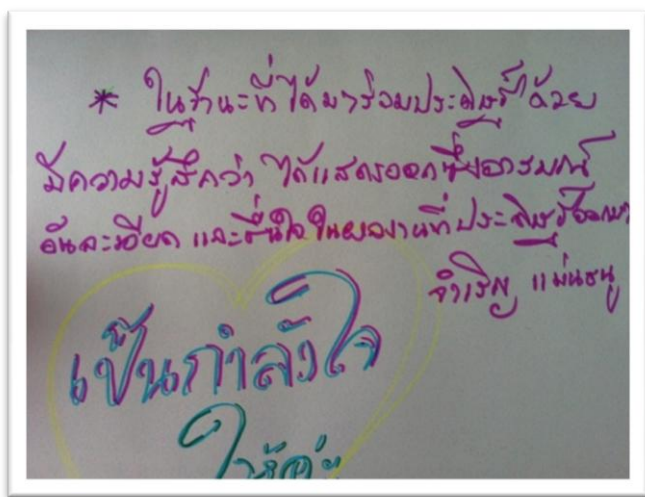 * ในฐานะที่ได้มาร่วมประดิษฐ์ด้วย
มีความรู้สึกว่า ได้แสดงออกซึ่งอารมณ์
อันละเอียด และชื่นใจในผลงานที่ประดิษฐ์ออกมา
จำเริญ แม่นธนู
เป็นกำลังใจ
ให้ค่ะ